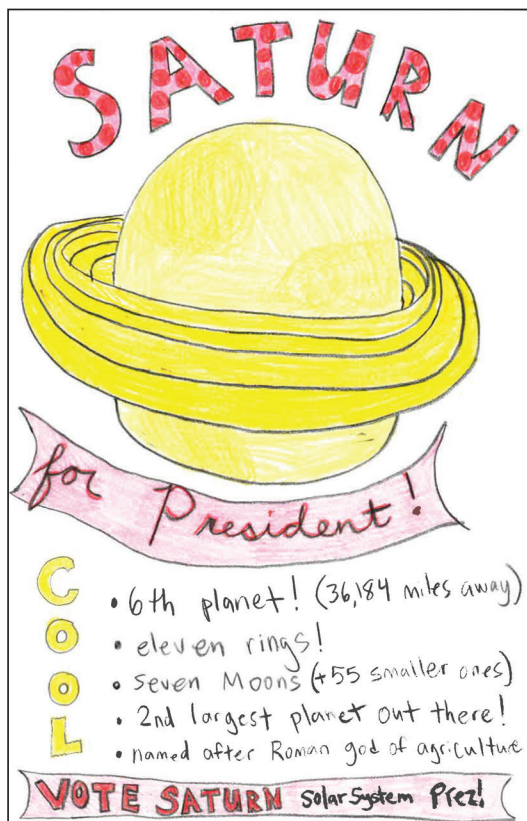 SATURN
for President!
COOL
• 6th planet! (36,184 miles away)
• eleven rings!
• Seven Moons (+55 smaller ones)
• 2nd largest planet out there!
• named after Roman god of agriculture
VOTE SATURN Solar System Prez!